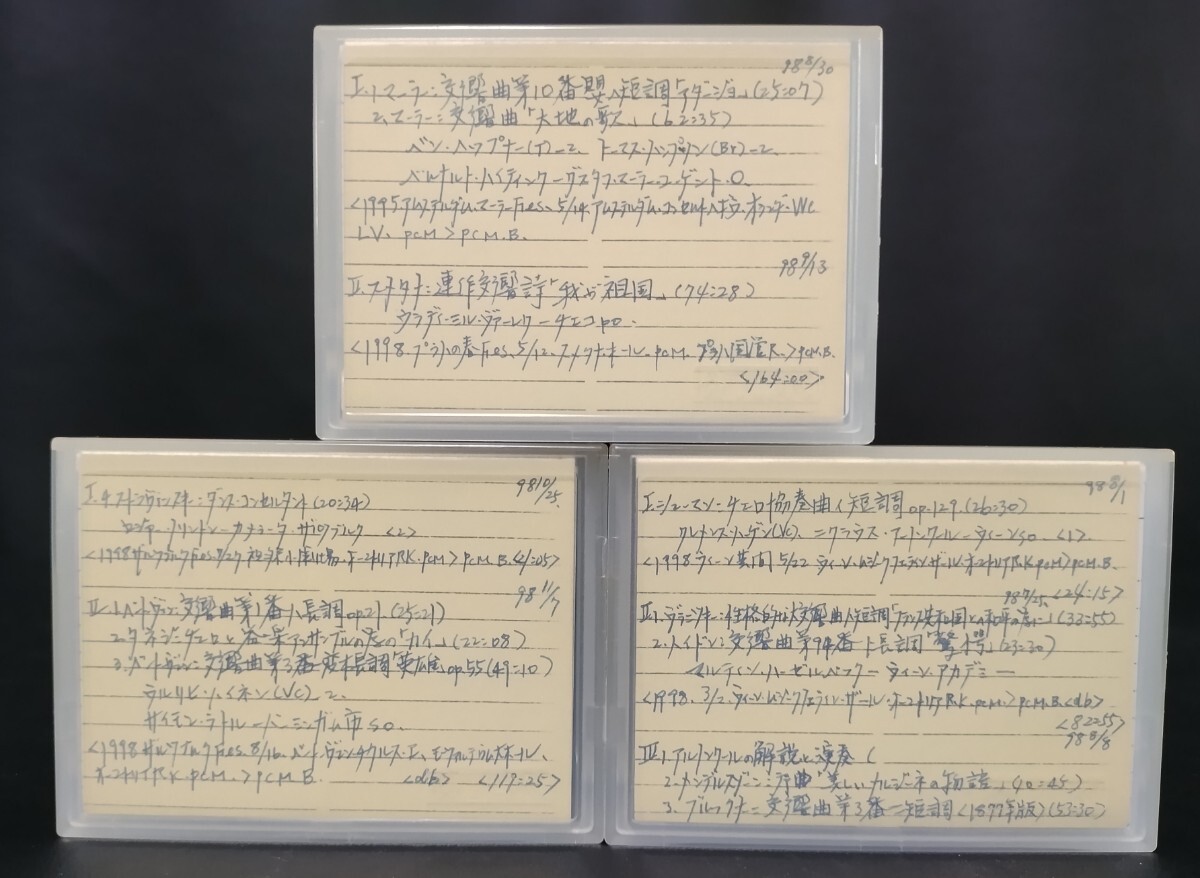 98 8/30
I.1.マーラー:交響曲第10番嬰ヘ短調「アダージョ」(25:07)
2.マーラー:交響曲「大地の歌」(62:35)
ベン・ヘップナー(T)ー2. トーマス・ハンプソン(Br)ー2.
ベルナルト・ハイティンクーグスタフ・マーラー・ユーゲント・O.
<1995アムステルダム.マーラーFes. 5/14.アムステルダム.コンセルトヘボウ.オランダ・WC
LV. PCM>PCM.B.
98 9/13
II.スメタナ:連作交響詩「我が祖国」(74:28)
ウラディーミル・ヴァーレクーチェコPO.
<1998.プラハの春Fes. 5/12.スメタナ・ホール.PCM. プラハ国営R.>PCM.B.
<164:00>
98 10/25.
I.ストラヴィンスキー:ダンス・コンセルタント(20:34)
ロジャー・ノリントンーカメラータ・ザルツブルク <2>
<1998ザルツブルクFes. 祝祭小劇場.オーストリアR.K.PCM>PCM.B.<21:05>
98 11/7
II.1.ベートヴェン:交響曲第1番ハ長調op.21.(25:21)
2.タネジ:チェロと室内アンサンブルの為の「カイ」(22:08)
3.ベートヴェン:交響曲第3番変ホ長調「英雄」op.55(49:10)
ウルリヒ・ハイネン(VC)ー2.
サイモン・ラトルーバーミンガム市SO.
<1998ザルツブルクFes. 8/16.ベートヴェン・チクルス・I. モーツァルテウム大ホール.
オーストリアR.K.PCM.>PCM.B. <db> <119:25>
98 8/1
I.シューマン:チェロ協奏曲イ短調op.129.(26:30)
クレメンス・ハーゲン(VC). ニクラウス・アーノンクールーウィーンSO. <1>.
<1998ウィーン芸間 5/22 ウィーン.ムジークフェラインザール.オーストリアR.K.PCM>PCM.B.
98 7/25. <24:15>
II.1.ヴラニツキー:性格的な大交響曲ハ短調「フランス共和国との和平の為に」(33:55)
2.ハイドン:交響曲第94番ト長調「驚愕」(23:30)
マルティン・ハーゼルベックーウィーン・アカデミー
<1998. 3/2. ウィーン.ムジークフェラインザール.オーストリアR.K.PCM.>PCM.B.<db>
<82:55>
98 8/8
III.1.アーノンクールの解説と演奏(
2.メンデルスゾーン:序曲「美しいメルジーネの物語」(40:45)
3.ブルックナー:交響曲第3番ニ短調<1877年版>(53:30)